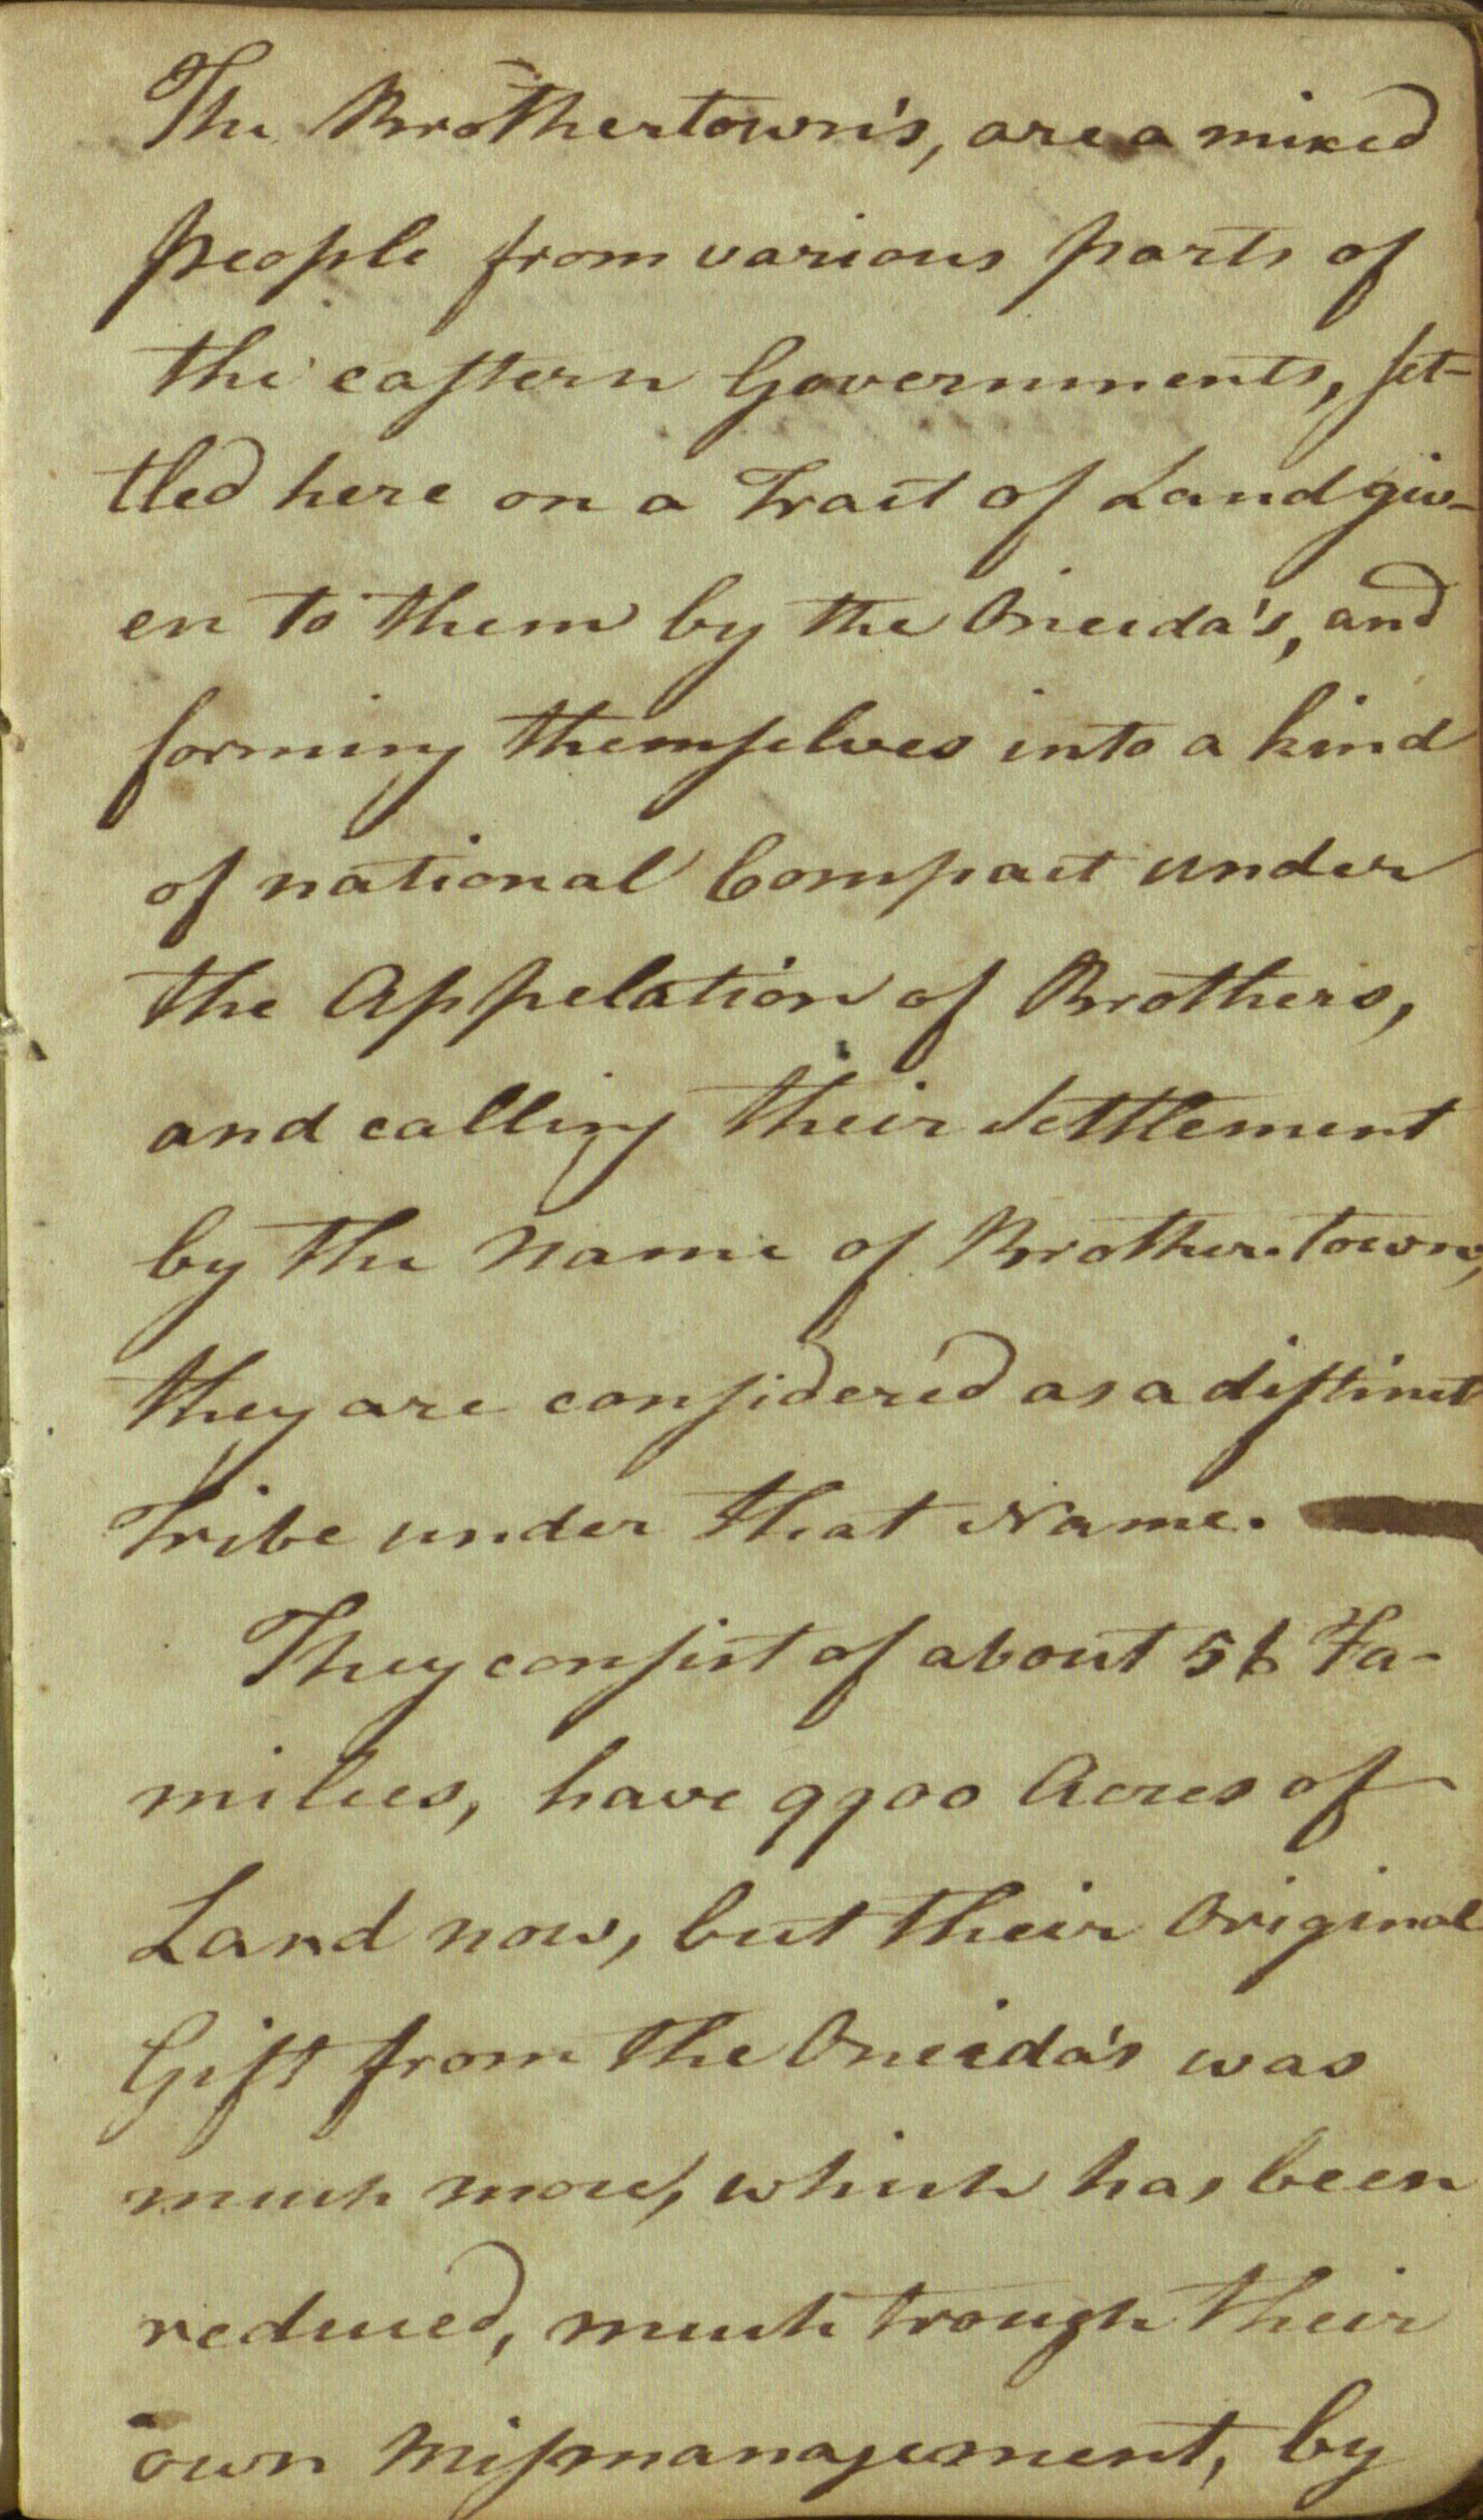 The Brothertown's, are a mixed
people from various parts of
the eastern Governments, set-
tled here on a Tract of Land giv-
en to them by the Oneida's, and
forming themselves into a kind
of national Compact under
the Appelation of Brothers,
and calling their Settlement
by the Name of Brothertown,
they are considered as a distinct
Tribe under that Name.
They consist of about 56 Fa-
milies, have 9900 Acres of
Land now, but their Original
Gift from the Oneida's was
much more, which has been
reduced, much trough their
own Mismanagement, by